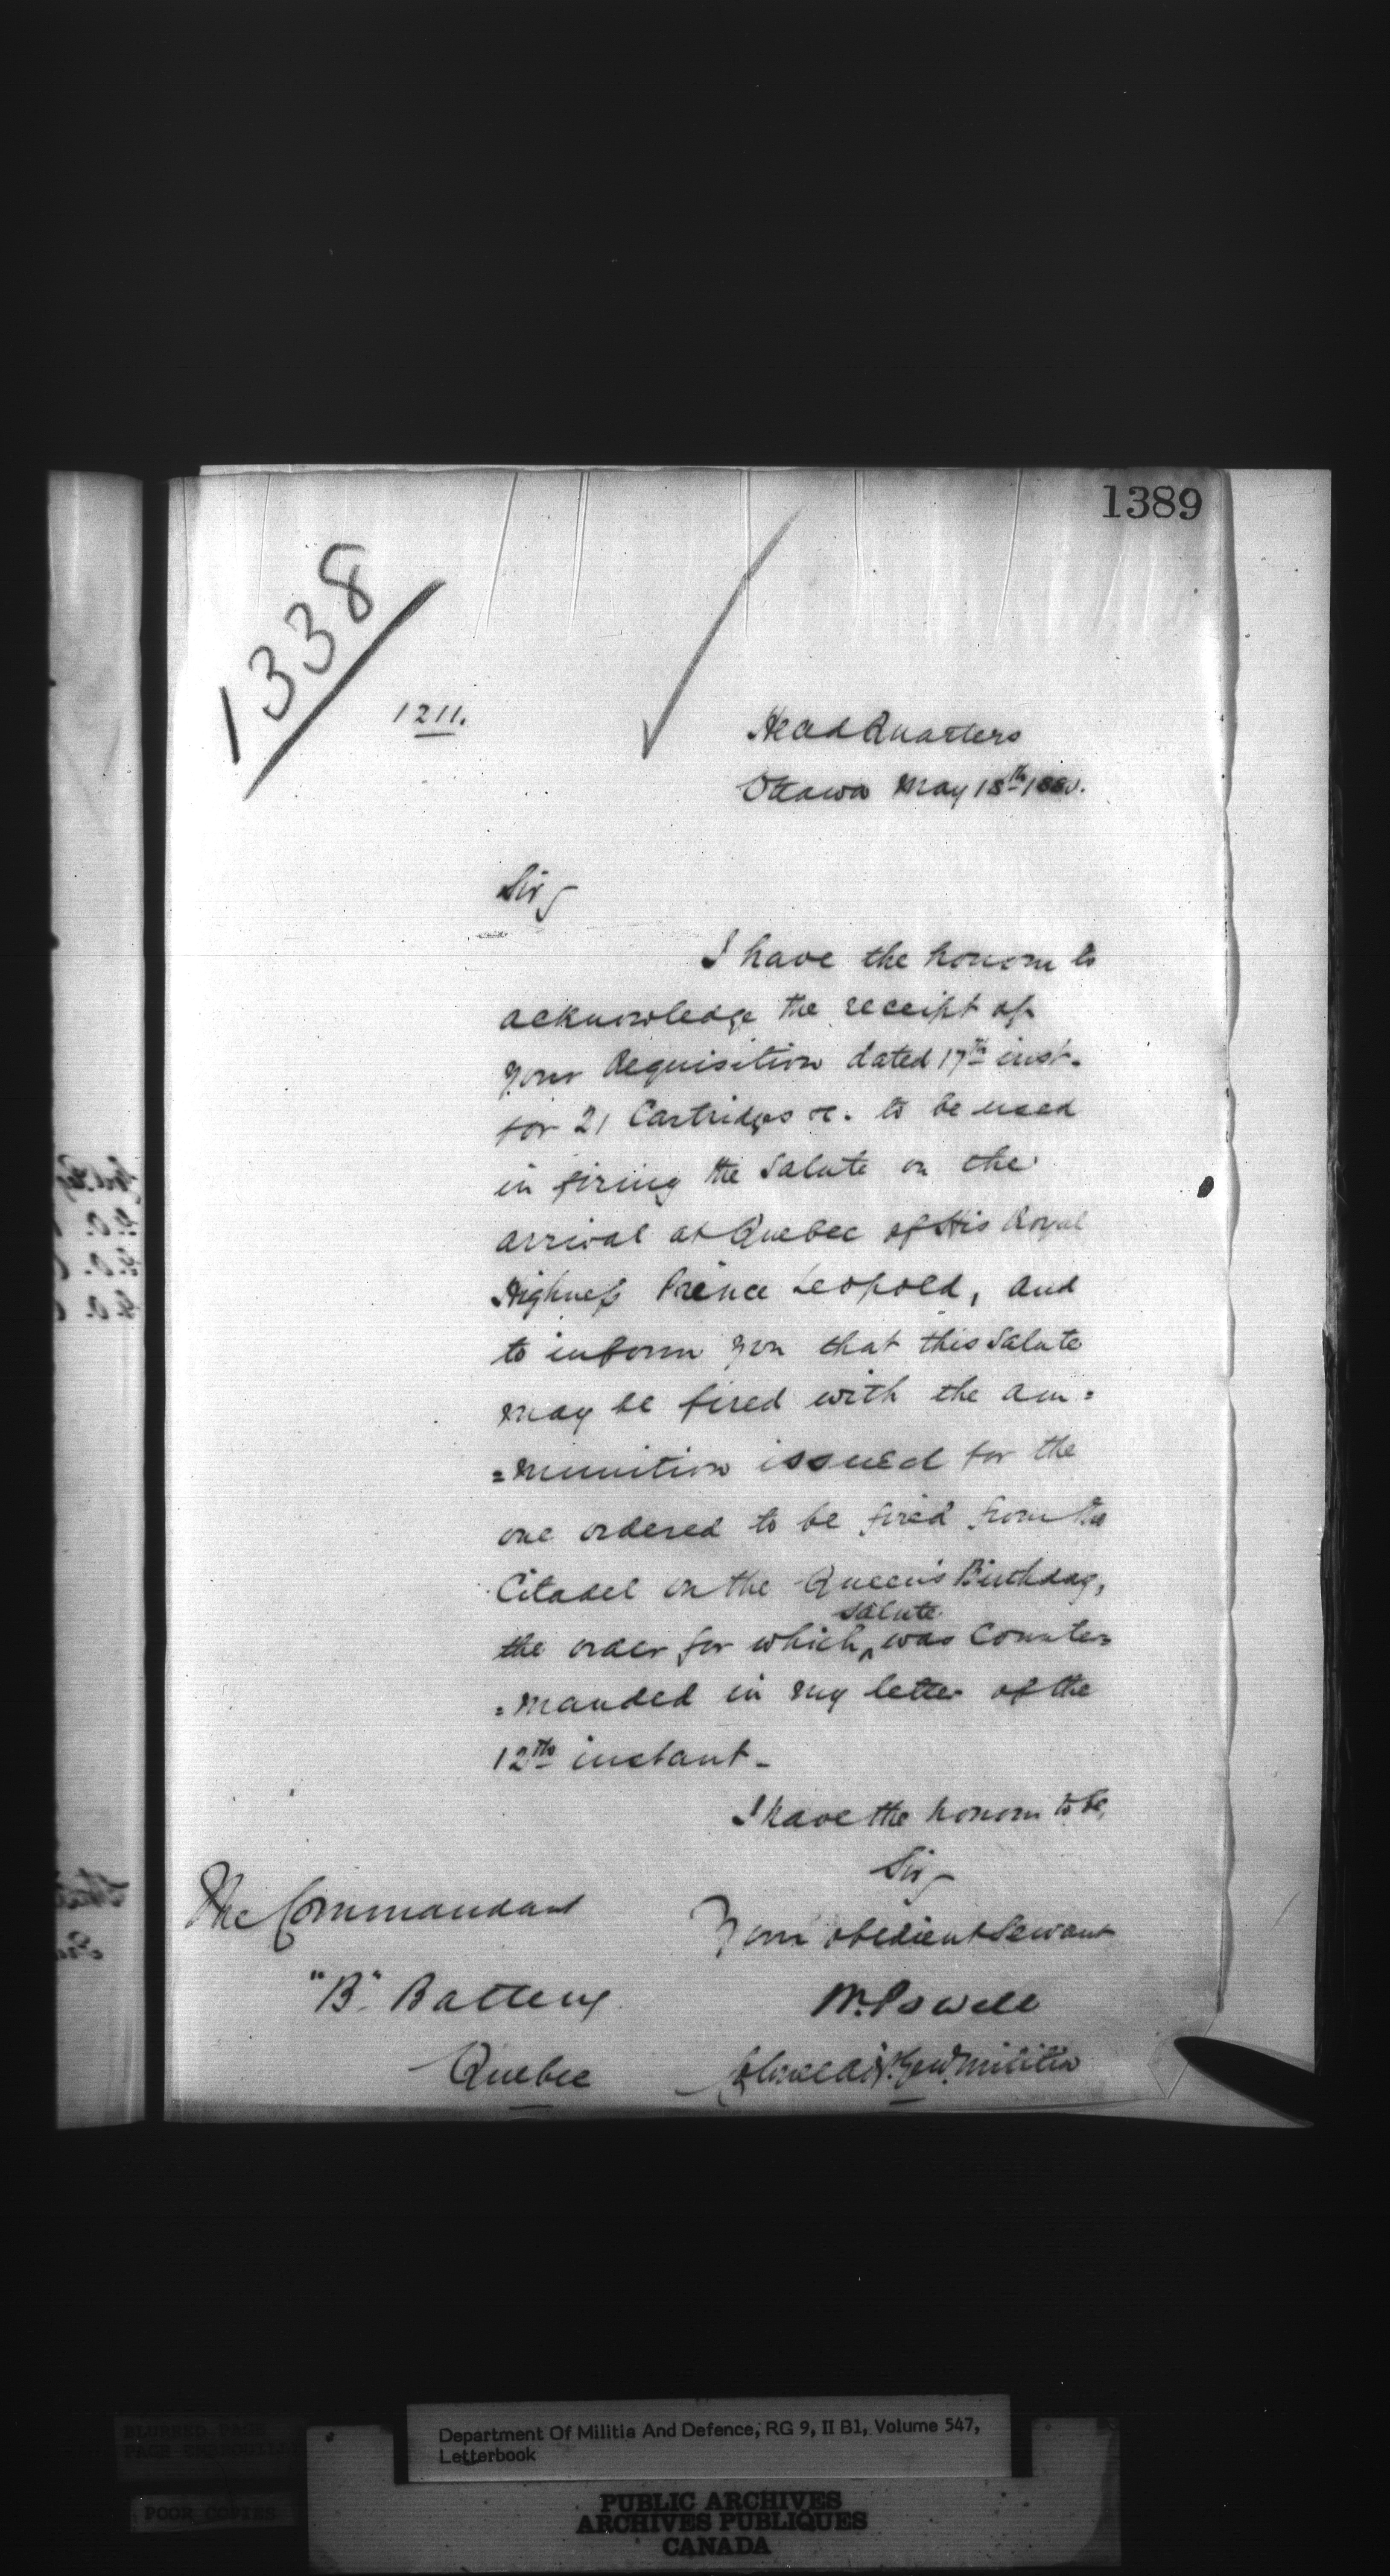 1389
1338
1211.
Head Quarters
Ottawa May 18th 1880.
Sir,
I have the honour to
acknowledge the receipt of
your Requisition dated 17th inst.
for 21 Cartridges &c. to be used
in firing the Salute on the
arrival at Quebec of His Royal
Highness Prince Leopold, and
to inform you that this Salute
may be fired with the am=
=munition issued for the
one ordered to be fired from the
Citadel on the Queen's Birthday,
salute
the order for which ^ was Counter=
=manded in my letter of the
12th instant_
I have the honour to be,
Sir,
Your obedient Servant
W. Powell
Colonel Adjt. Genl. Militia
The Commandant
"B" Battery
Quebec
Department Of Militia And Defence, RG 9, II B1, Volume 547,
Letterbook
PUBLIC ARCHIVES
ARCHIVES PUBLIQUES
CANADA
BLURRED PAGE
POOR COPIES